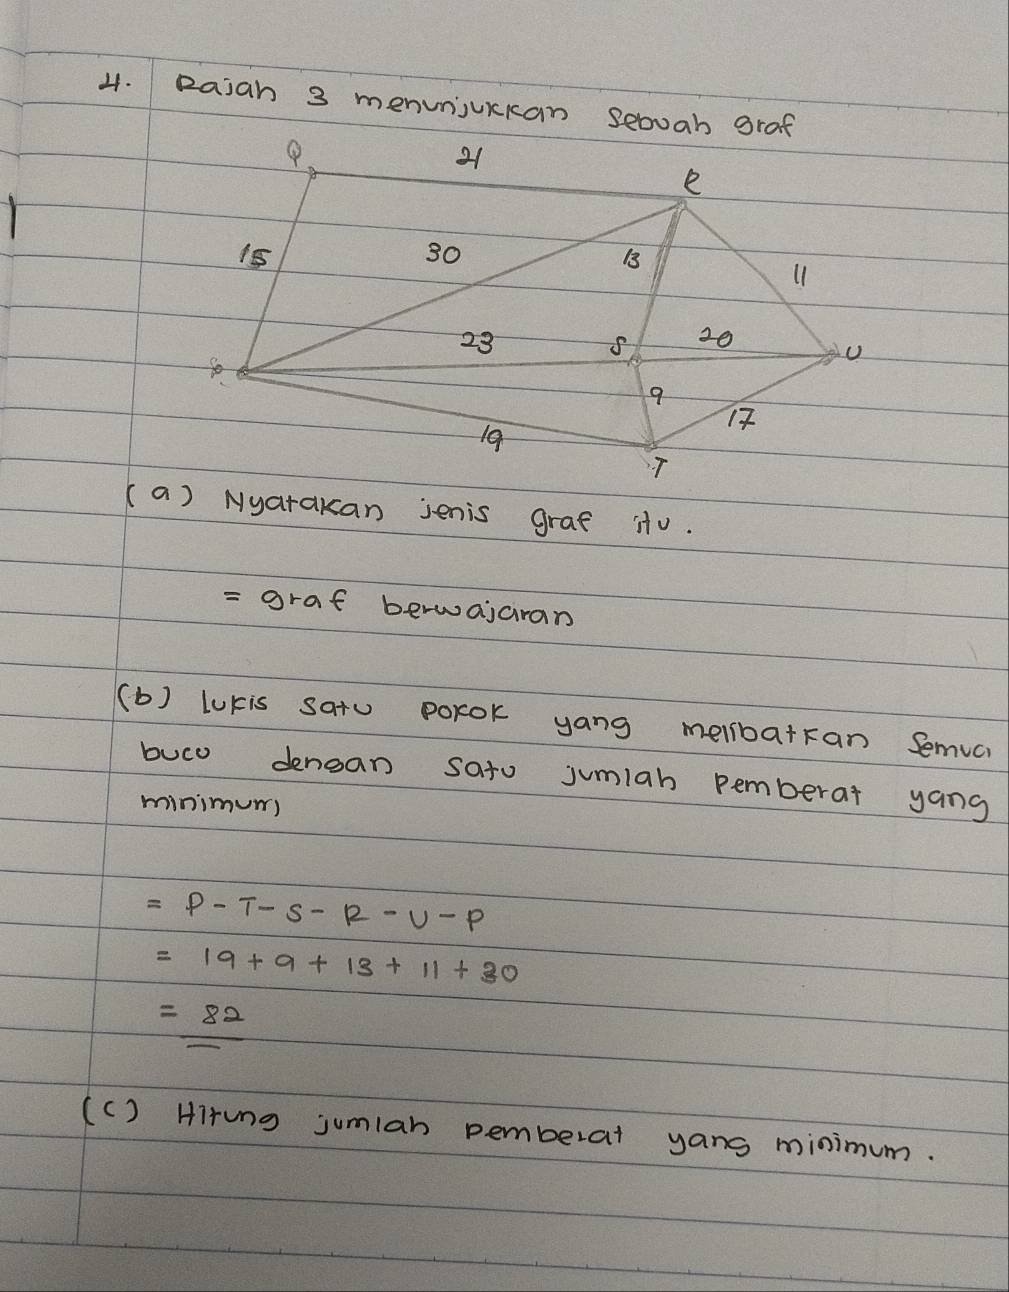 4. Rajah 3 menunjukkan sebuah graf
Q 21 R
15 30 13 11
23 S 20 U
P 9
19 17
T
(a) Nyatakan jenis graf itu.
= graf berwajaran
(b) lukis satu pokok yang melibatkan semua
bucu dengan satu jumlah pemberat yang
minimum)
= P-T-S-R-U-P
= 19+9+13+11+30
= 82
(c) Hitung jumlah pemberat yang minimum.